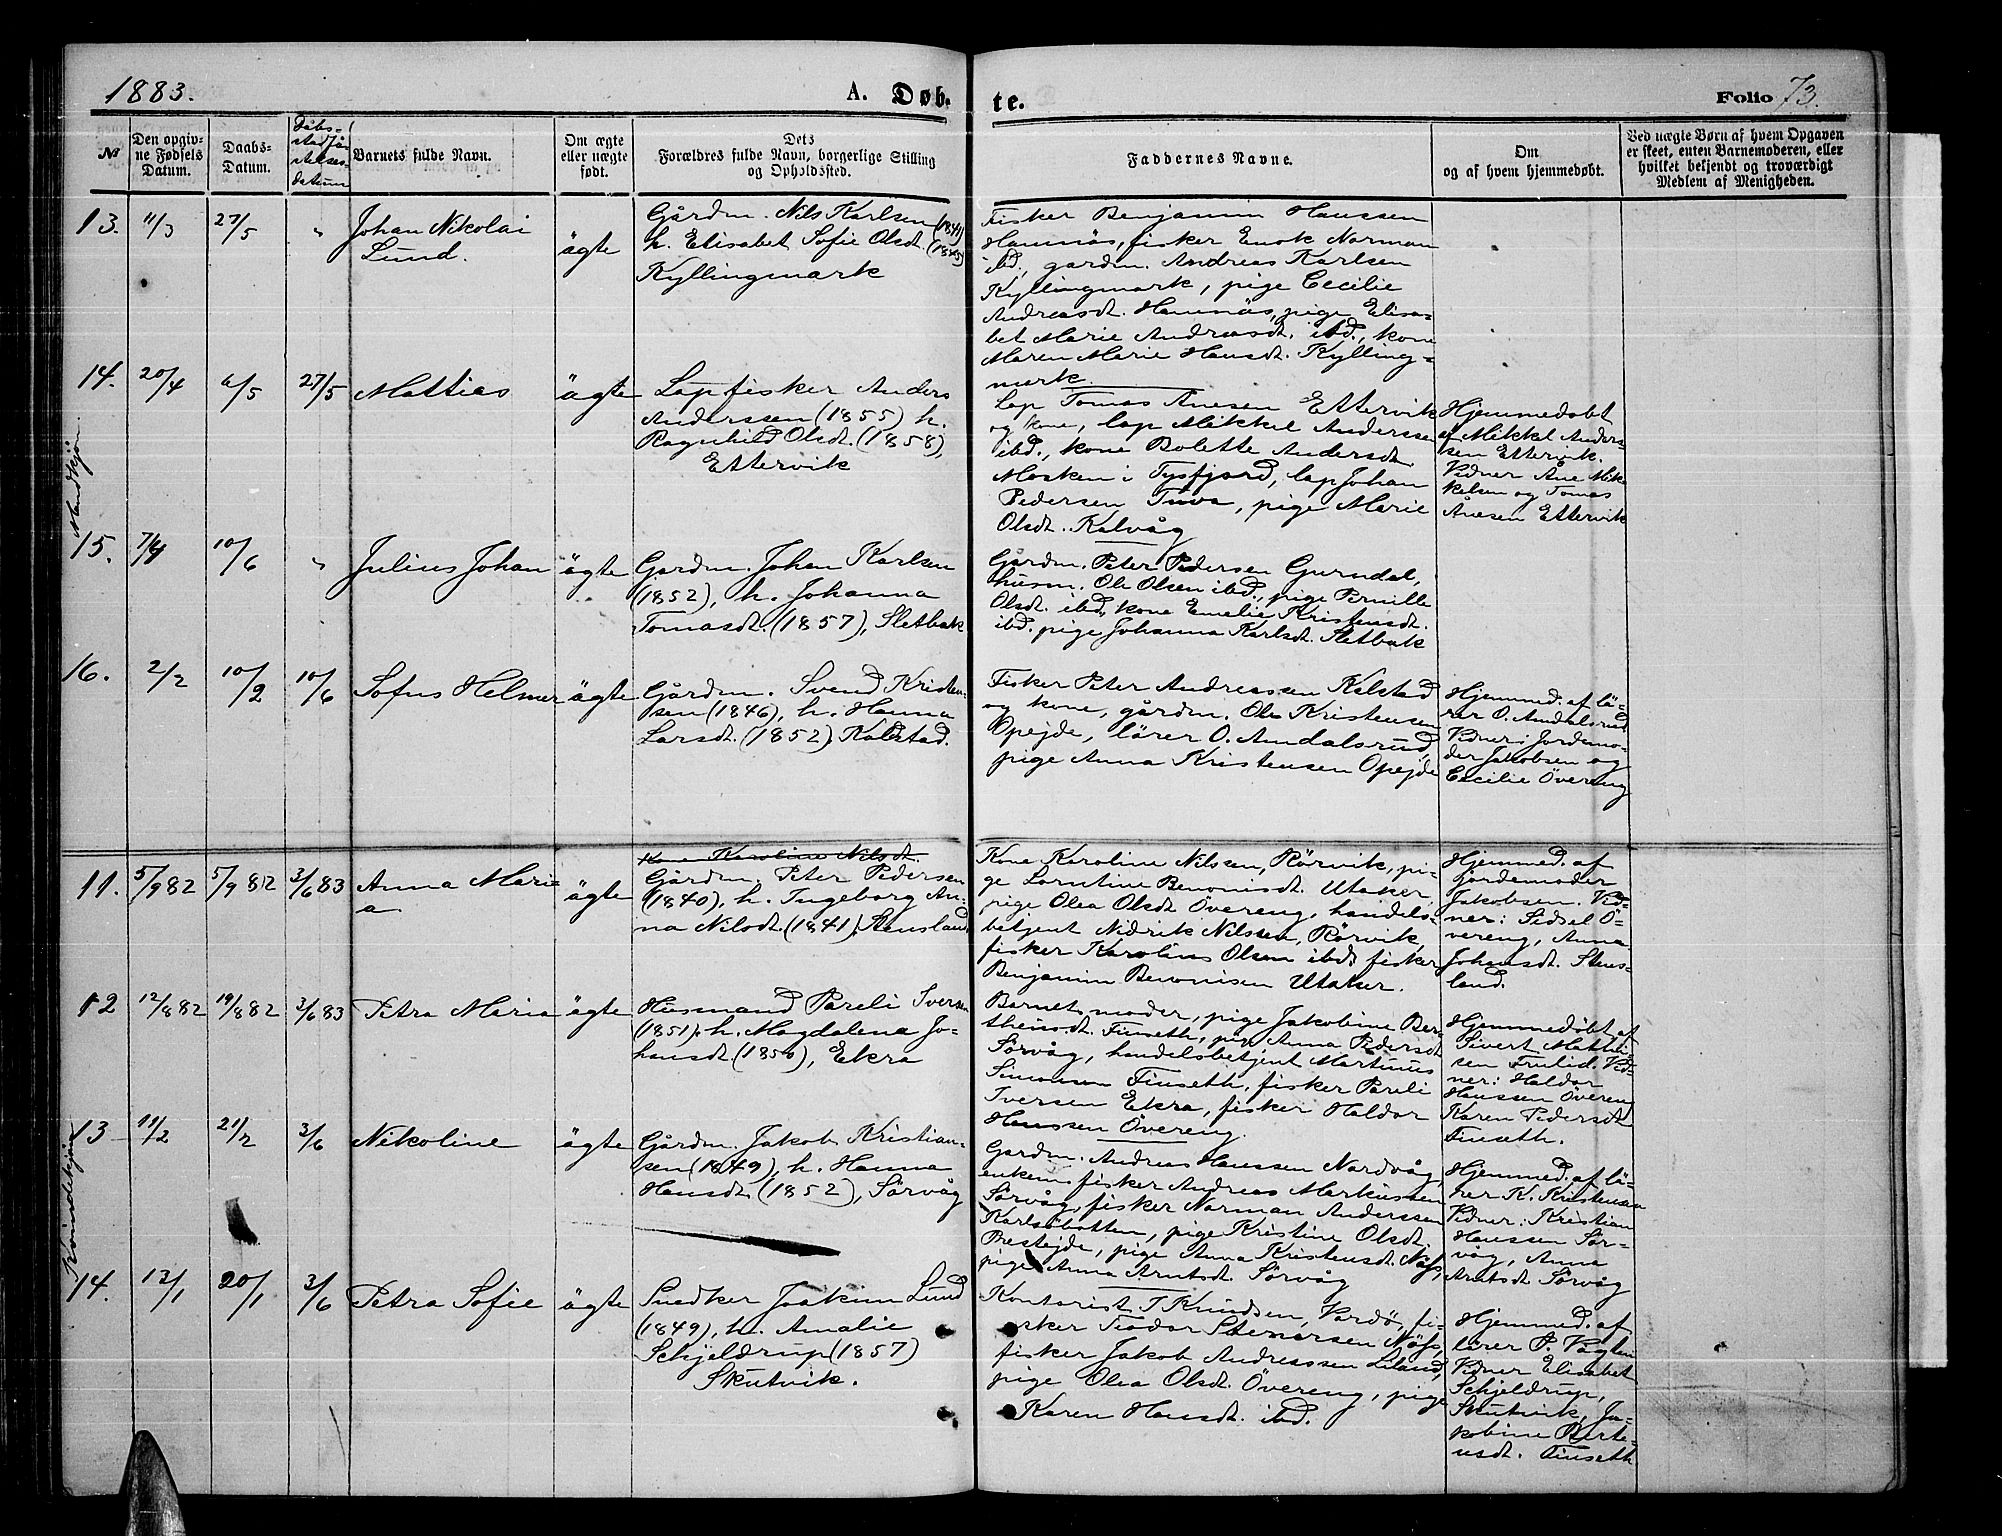 1883.
A. Døb-
te.
Folio 73.
№
Den opgiv-
ne Fødsels
Datum.
Daabs-
Datum.
Dåbs-
stadfä
stelses-
datum
Barnets fulde Navn.
Om ægte
eller uægte
født.
Dets
Forældres fulde Navn, borgerlige Stilling
og Opholdssted.
Faddernes Navne.
Om
og af hvem hjemmedøbt.
Ved uægte Børn af hvem Opgaven
er skeet, enten Barnemoderen, eller
hvilket bekjendt og troværdigt
Medlem af Menigheden.
Mandkjøn.
13.
11/3
27/5
"
Johan Nikolai
Lund.
ägte
Gårdm. Nils Karlsen (1841)
h. Elisabet Sofie Olsdt. (1845)
Kyllingmark
Fisker Benjamin Hanssen
Hamnäs, fisker Enok Norman
ibd., gardm. Andreas Karlsen
Kyllingmark, pige Cecilie
Andreasdt. Hamnäs, pige Elisa-
bet Marie Andreasdt. ibd., kone
Maren Marie Hansdt. Kylling-
mark.
14.
20/4
6/5
27/5
Mattias
ägte
Lapfisker Anders
Anderssen (1855) h.
Ragnhild Olsdt. (1858),
Ettervik
Lap Tomas Anesen Ettervik
og kone, lap Mikkel Anderssen
ibd., kone Bolette Andersdt.
Mosken i Tysfjord, lap Johan
Pedersen Tuva, pige Marie
Olsdt. Kalvåg
Hjemmedøbt
af Mikkel Anders-
sen Ettervik.
Vidner Åne Mik-
kelsen og Tomas
Ånesen Ettervik
15.
7/4
10/6
"
Julius Johan
ägte
Gardm. Johan Karlsen
(1852), h. Johanna
Tomasdt. (1857), Sletbak
Gårdm. Peter Pedersen Gurndal,
husm. Ole Olsen ibd., pige Pernille
Olsdt. ibd., kone Emelie Kristensdt.
ibd. pige Johanna Karlsdt. Sletbak
16.
2/2
10/2
10/6
Sofus Helmer
ägte
Gårdm. Svend Kristen-
sen (1846), h. Hanna
Larsdt. (1852), Kalstad.
Fisker Peter Andreassen Kalstad
og kone, gårdm. Ole Kristensen
Opejde, lärer O. Amdalsrud,
pige Anna Kristensen Opejde
Hjemmed. af lä-
rer O. Amdalsrud
Vidner: Jordemo-
der Jakobsen og
Cecilie Övereng
Kvindekjøn
11.
5/9 82
5/9 82
3/6 83
Anna Mari-
a.
ägte
Kone Karoline Nilsdt.
Gårdm. Peter Pedersen
(1840), h. Ingeborg An-
na Nilsdt. (1841), Stensland
Kone Karoline Nilsen, Rörvik, pi-
ge Lorntine Benonisdt. Utaker,
pige Olea Olsdt Övereng, handels-
betjent Nidrik Nilssen, Rörvik,
fisker Karolius Olsen ibd. fisker
Benjamin Benonisen Utaker.
Hjemmed. af
jordemoder
Jakobsen. Vid-
ner: Sidsel Ö-
vereng, Anna
Johansdt. Stens-
land.
12
12/8 82
19/8 82
3/6 83
Petra Maria
ägte
Husmand Pareli Iversen
(1851), h. Magdalena Jo-
hansdt (1850), Ekra
Barnets moder, pige Jakobine Ber-
theusdt. Finseth, pige Anna Pedersdt
Sörvåg, handelsbetjent Martinus
Simonsen Finseth, fisker Pareli
Iversen Ekra, fisker Haldor
Hanssen Övereng.
Hjemmedöbt af
Sivert Mathi-
sen Frulid. Vid-
ner: Haldor
Hanssen Övereng
Karen Pedersdt
Finseth.
13
11/2
21/2
3/6
Nikoline
ägte
Gårdm. Jakob Kristian-
sen (1849), h. Hanna
Hansdt (1852), Sörvåg
Gardm. Andreas Hanssen Nordvåg,
enkem. fisker Andreas Markussen
Sörvåg, fisker Norman Anderssen
Karlsöbotten, pige Kristine Olsdt.
Prestejde, pige Anna Kristensdt Näss,
pige Anna Arntsdt. Sörvåg
Hjemmed. af lä-
rer K. Kristensen
Vidner: Kristian
Hanssen Sör-
våg, Anna
Arntsdt Sörvåg
14.
12/1
20/1
3/6
Petra Sofie
ägte
Snedker Joakim Lund
(1849), h. Amalie
Schjeldrup (1857)
Skutvik.
Kontorist T Knudsen, Vardö, fi-
sker Teodor Stenersen Näss,
fisker Jakob Andreassen Liland,
pige Olea Olsdt. Övereng, pige
Karen Hansdt. ibd.
Hjemmed. af
lärer P. Vegten
Vidner Elisabet
Schjeldrup,
Skutvik, Ja-
kobine Berte-
usdt. Finseth